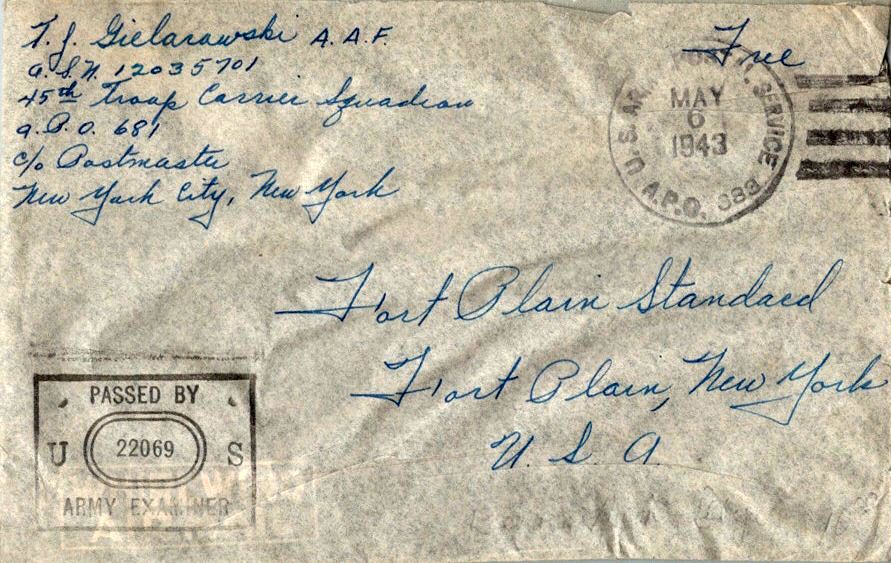 T. J. Gielarowski A.A.F.
A.S.N. 12035701
45th Troop Carrier Squadron
A.P.O. 681
c/o Postmaster
New York City, New York
Free
U.S. ARMY POSTAL SERVICE
MAY
6
1943
A.P.O.
Fort Plain Standard
Fort Plain, New York
U. S. A.
PASSED BY
U 22069 S
ARMY EXAMINER